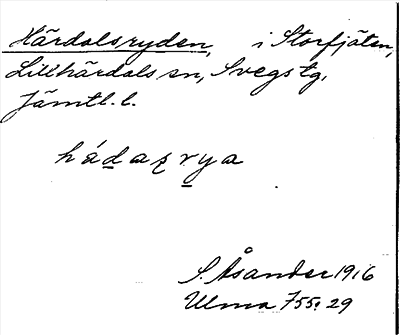 Härdalsryden, i Storfjäten,
Lillhärdals sn, Svegs tg,
Jämtl. l.
hádaʐrya
S. Åsander 1916
Ulma 755:29